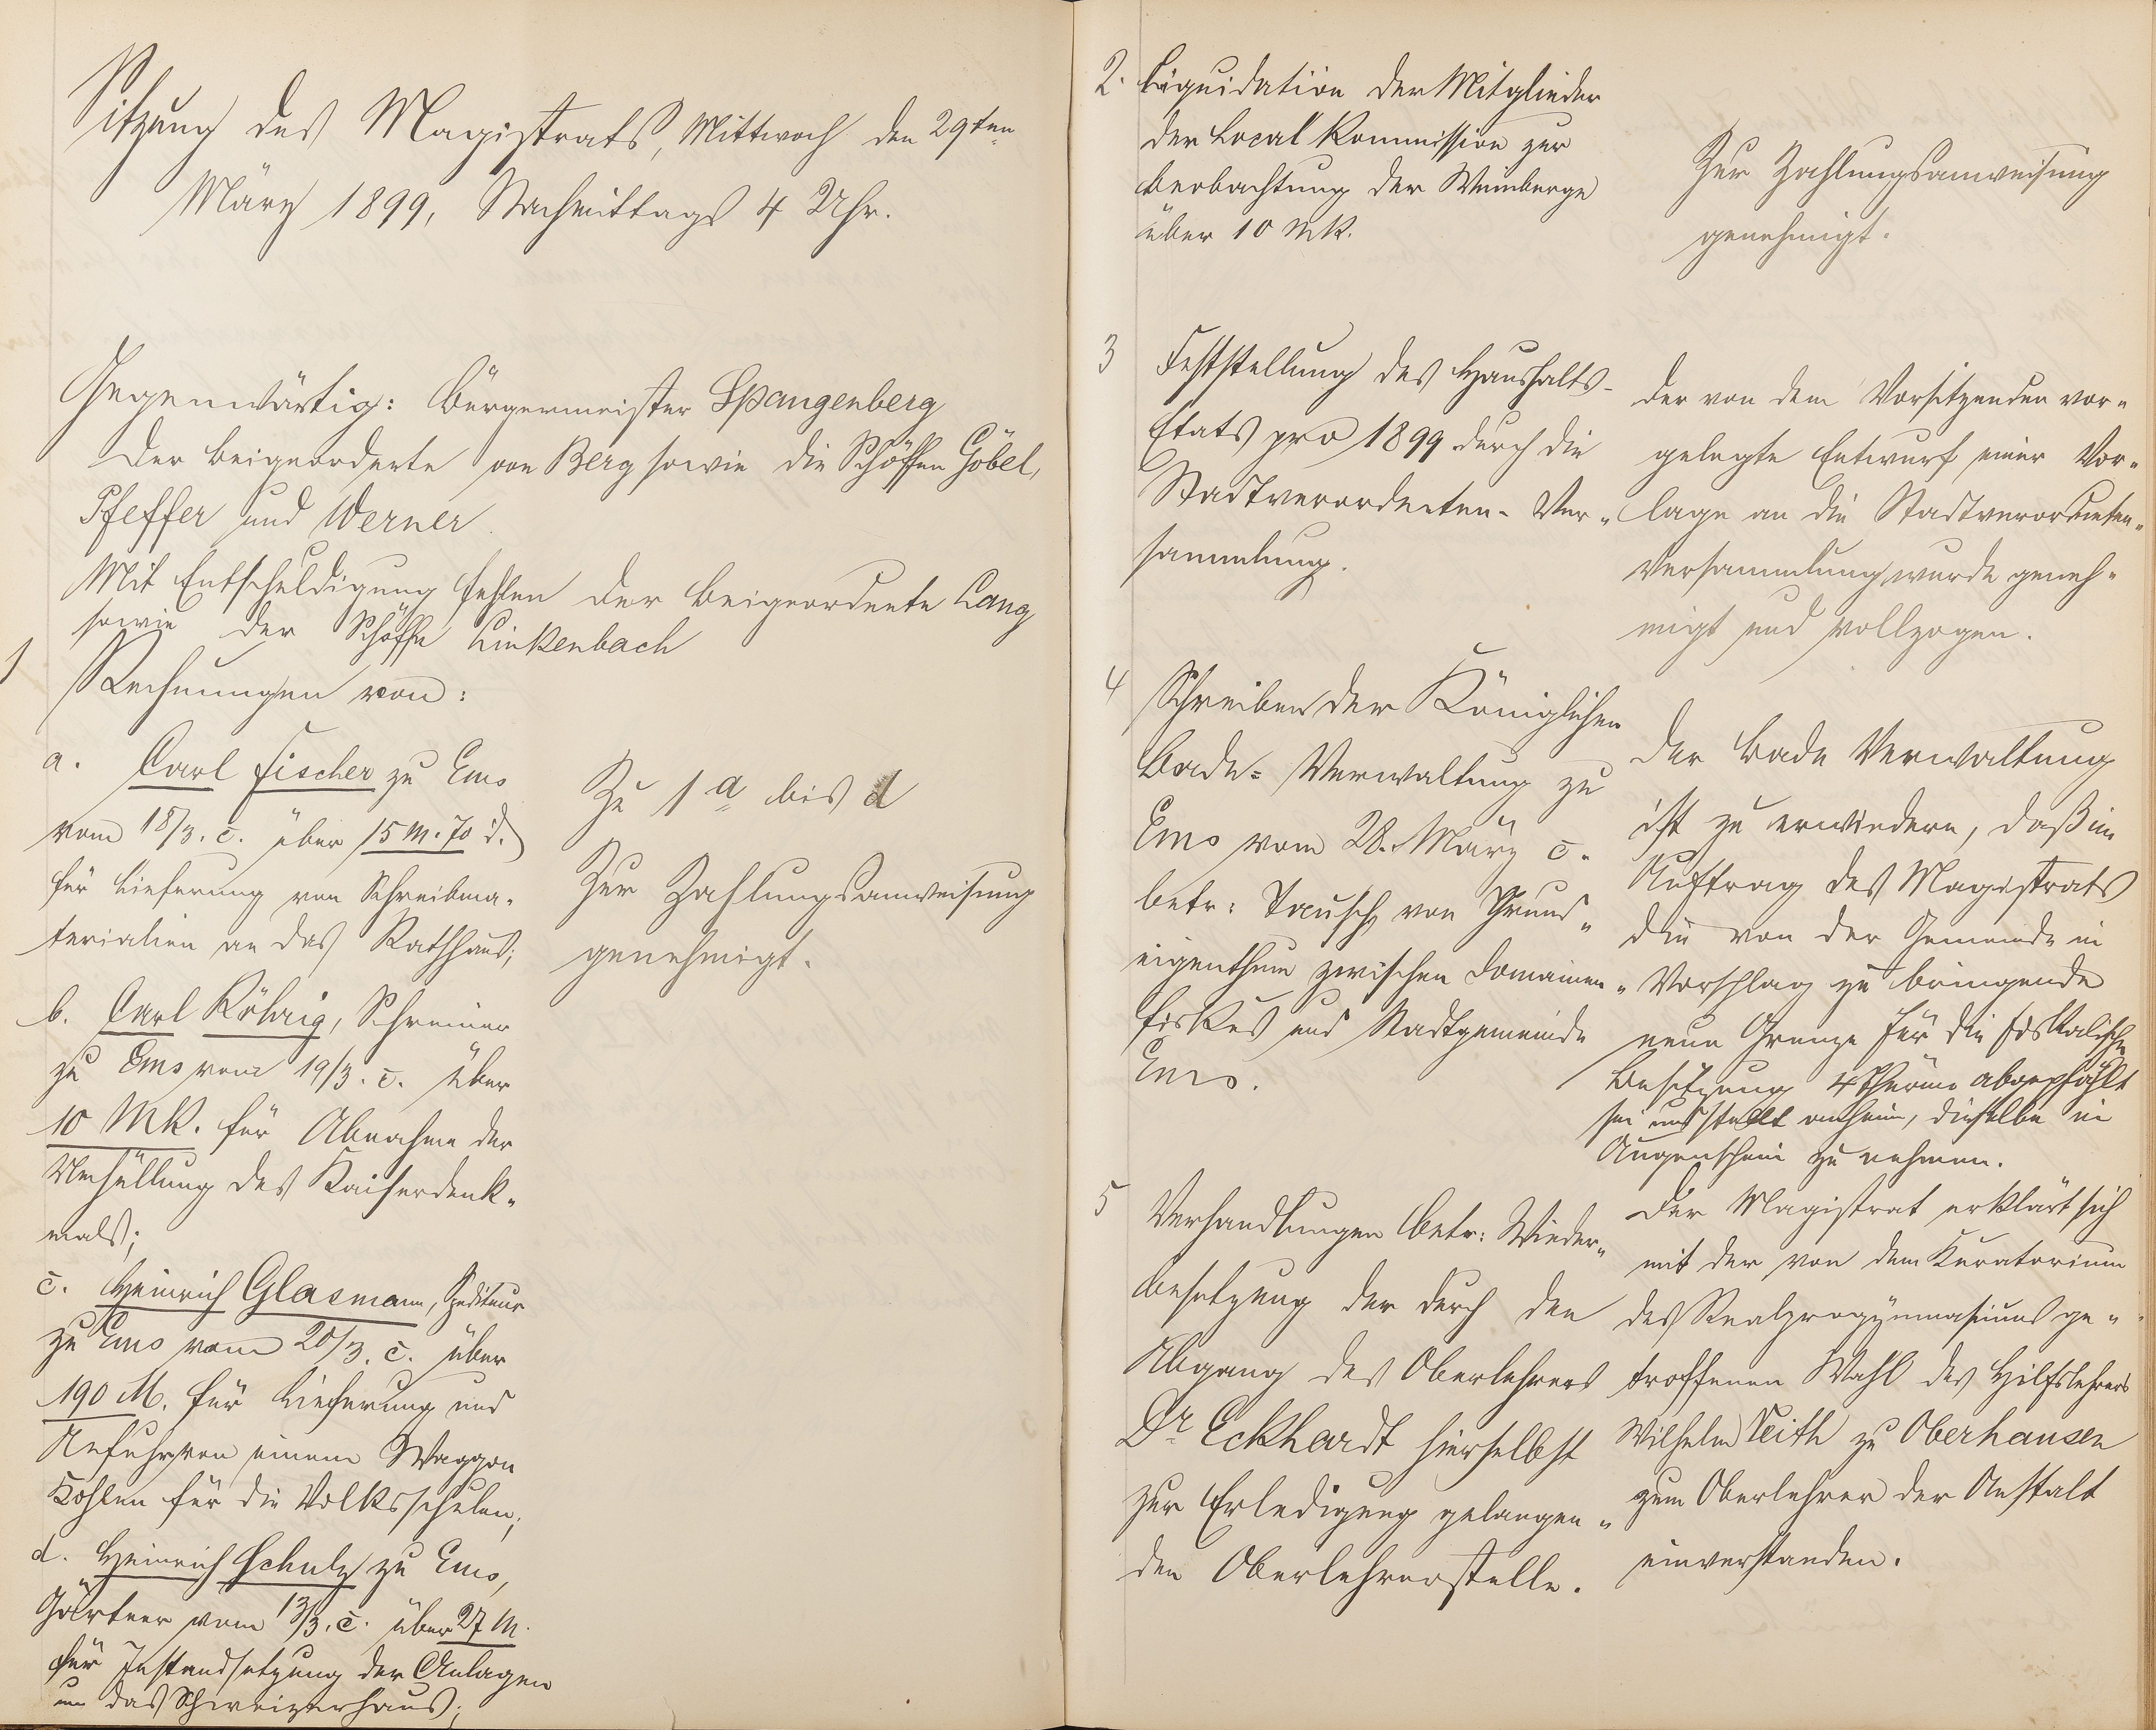 Sitzung des Magistrats, Mittwoch den 29ten
März 1899, Nachmittags 4 Uhr.
Gegenwärtig: Bürgermeister Spangenberg
Der Beigeordnete von Berg sowie die Schöffen Göbel,
Pfeffer und Werner.
Mit Entschuldigung fehlen der Beigeordnete Lang
sowie der Schöffe Linkenbach
1 Rechnungen von:
a. Carl Fischer zu Ems
vom 18/3. c. über 15 M. 70 d.
für Lieferung von Schreibma-
terialien an das Rathhaus;
b. Carl Röhrig, Schreiner
zu Ems vom 19/3. c. über
10 Mk. für Abnahme der
Verhüllung des Kaiserdenk-
mals;
c. Heinrich Glasmann, Spediteur
zu Ems vom 20/3. c. über
190 M. für Lieferung und
Anfuhr von einem Waggon
Kohlen für die Volksschulen;
d. Heinrich Schulz zu Ems,
Gärtner vom 13/3. c. über 27 M.
für Instandsetzung der Anlagen
um das Schweizerhaus;
Zu 1 a bis d
Zur Zahlungsanweisung
genehmigt.
2. Liquidation der Mitglieder
der Local Kommission zur
Beobachtung der Weinberge
über 10 Mk.
Zur Zahlungsanweisung
genehmigt.
3 Feststellung des Haushalts-
Etats pro 1899 durch die
Stadtverordneten-Ver-
sammlung.
Der von dem Vorsitzenden vor-
gelegte Entwurf einer Vor-
lage an die Stadtverordneten-
Versammlung wurde geneh-
migt und vollzogen.
4 Schreiben der Königlichen
Bade-Verwaltung zu
Ems vom 28. März c.
betr: Tausch von Grund-
eigenthum zwischen Domainen-
fiskus und Stadtgemeinde
Ems.
Der Bade Verwaltung
ist zu erwiedern, daß im
Auftrag des Magistrats
die von der Gemeinde in
Vorschlag zu bringende
neue Grenze für die fiskalische
Besitzung 4 Thürme abgepfählt
sei und stellt anheim, dieselbe in
Augenschein zu nehmen.
5 Verhandlungen betr: Wieder-
besetzung der durch den
Abgang des Oberlehrers
Dr Eckhardt hierselbst
zur Erledigung gelangen-
den Oberlehrerstelle.
Der Magistrat erklärt sich
mit der von dem Kuratorium
des Realprogymnasiums ge-
troffenen Wahl des Hilfslehrers
Wilhelm Veith zu Oberhausen
zum Oberlehrer der Anstalt
einverstanden.